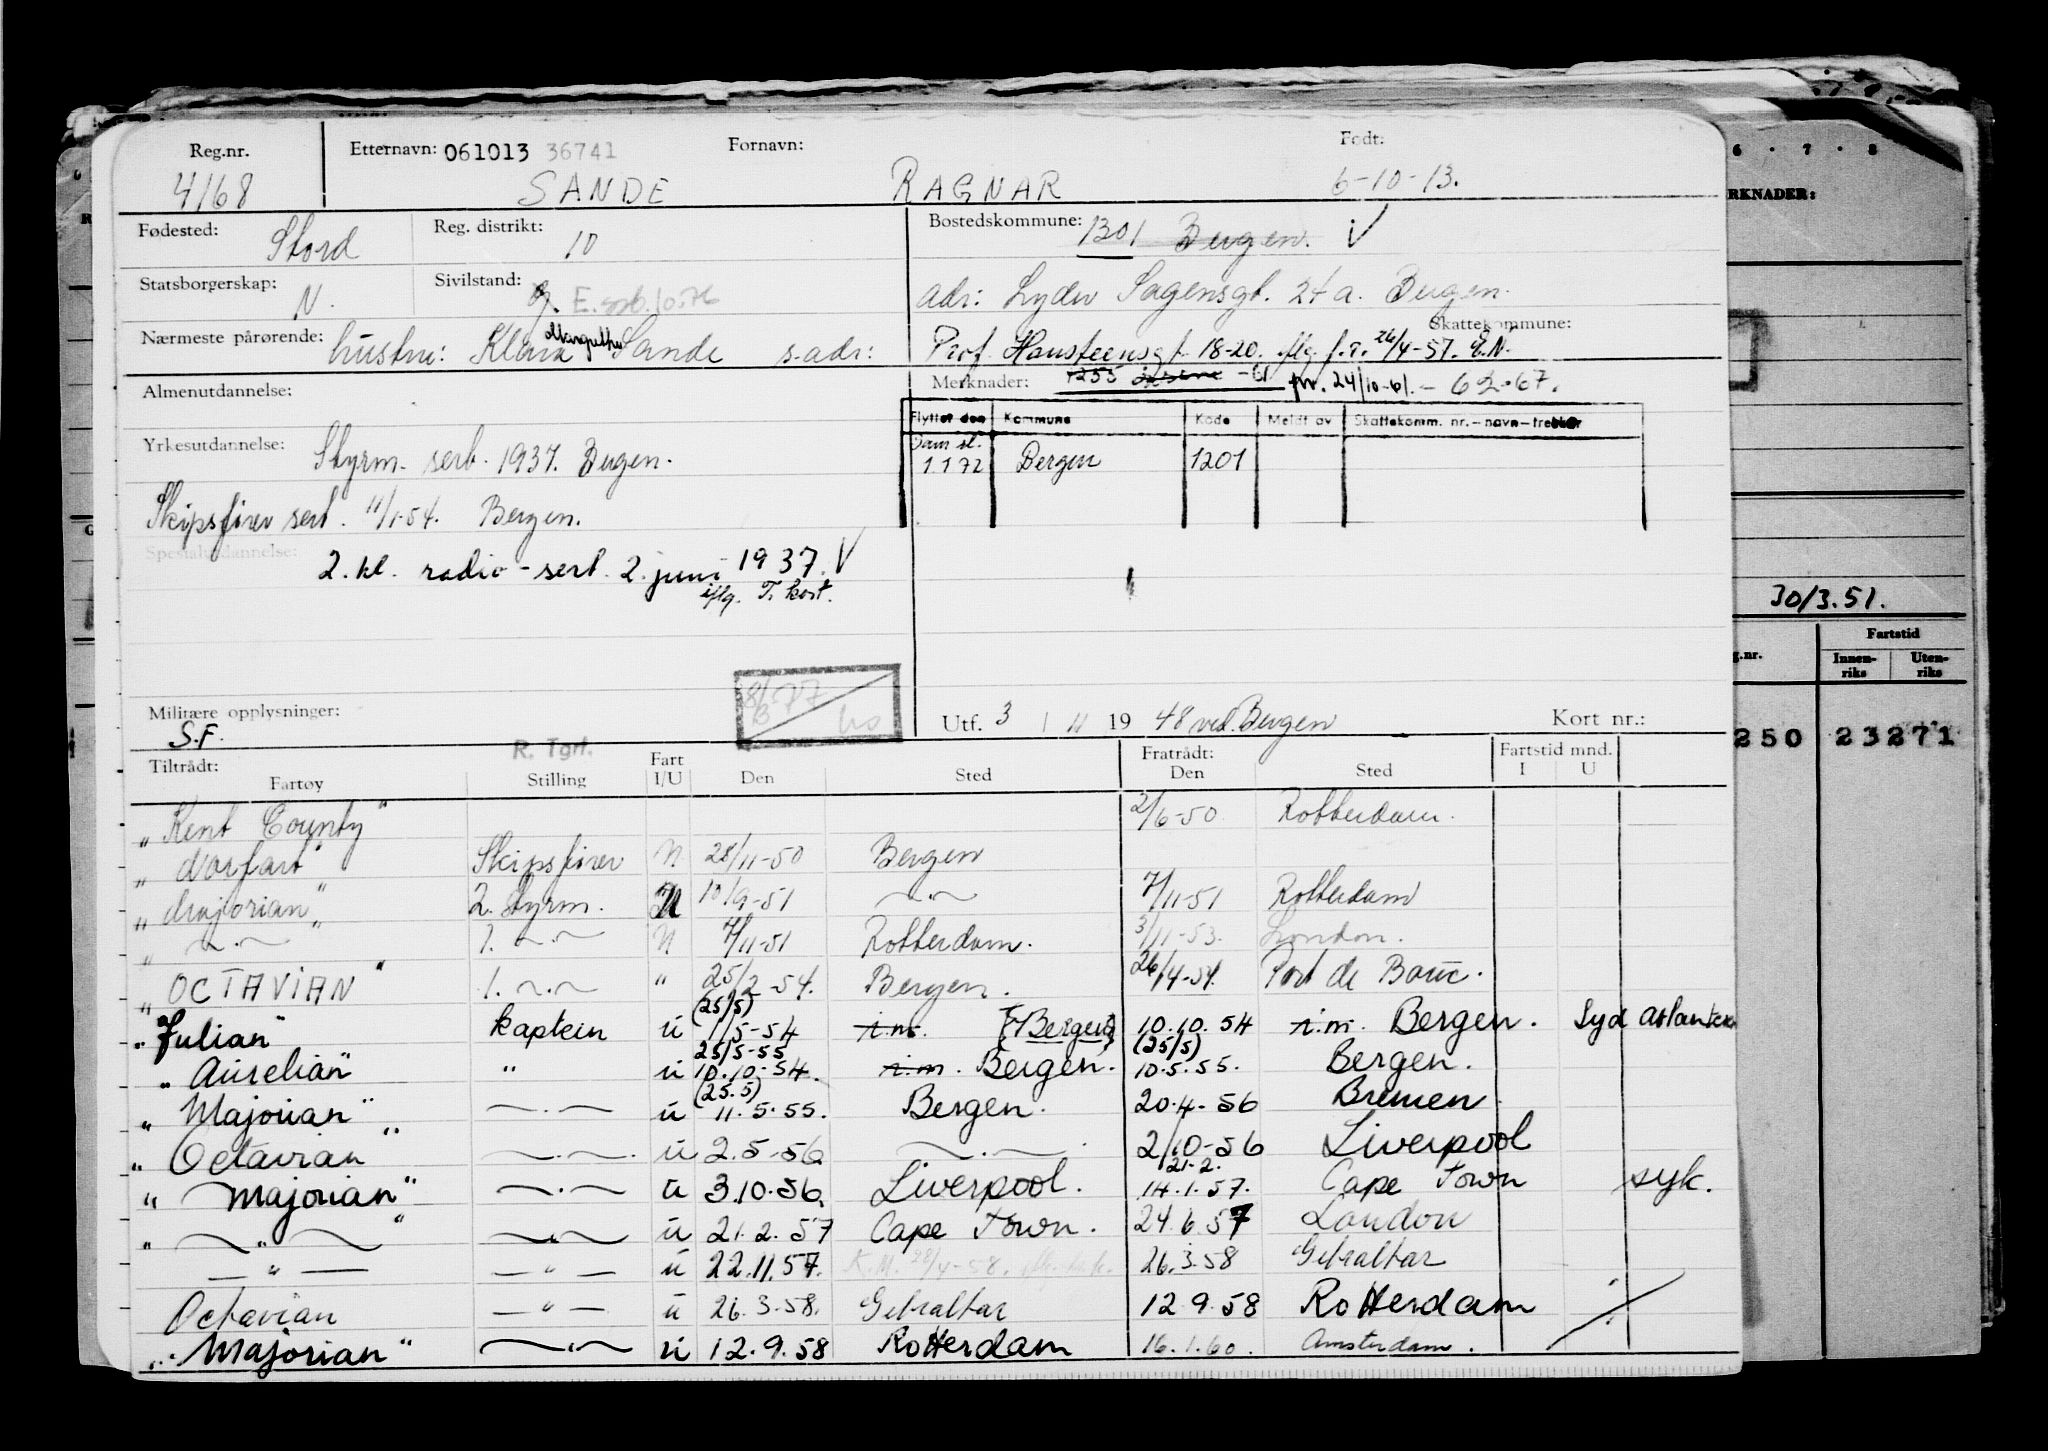 Reg.nr. Etternavn: 061013 36741 Fornavn: Født:
4168 SANDE RAGNAR 6-10-13.
Fødested: Stord Reg. distrikt: 10 Bostedskommune: 1301 Bergen. V
Statsborgerskap: N. Sivilstand: g. E. 10.76 adr: Lyder Sagensgt. 24 a. Bergen.
Nærmeste pårørende: hustru: Klara Margrethe Sande s.adr: Skattekommune:
Prof. Hansteensgt. 18-20. flg. f.r. 26/4-57. E.N.
Almenutdannelse: Merknader: 1255 -61 fr. 24/10-61. - 6 2-67.
Flyttet den Kommune Kode Meldt av Skattekomm. nr.-navn-trekkår
Yrkesutdannelse: Styrm. serb. 1937. Bergen.
Sam sl. 1 1 72 Bergen 1201
Skipsfører sert. 11/1-54. Bergen.
Spesialutdannelse: 2. kl. radio-sert. 2. juni 1937. V
iflg. T. kort.
30/3.51.
Fartstid
g.nr. Innenriks Utenriks
RKNADER:
6 · 7 · 8
8/3-77
Militære opplysninger: S.F.
Utf. 3 / 11 19 48 ved Bergen Kort nr.:
250 23271
R. Tgrf.
Tiltrådt: Fart Fratrådt: Fartstid mnd.
Fartøy Stilling I/U Den Sted Den Sted I U
"Kent County" 2/6-50 Rotterdam.
"Norfart" Skipsfører U 28/11-50 Bergen
"Majorian" 2. styrm. U 10/9-51 ~.~ 7/11-51 Rotterdam
" ~.~ 1. ~.~ U 7/11-51 Rotterdam. 3/11-53. London.
"OCTAVIAN" 1. ~.~ " 25/2-54. Bergen. 26/4-54. Port de Bouc.
"Julian" kaptein u (25/5) 1/5-54 i.m. (Bergen) 10.10.54 i.m. Bergen. Syd Atlanteren
"Aurelian" " u 25/5-55 10.10.54. i.m. Bergen. (25/5) 10.5.55. Bergen.
"Majorian" ~.~ u (25.5) 11.5.55. Bergen. 20.4-56 Bremen.
"Octavian" ~.~ u 2.5.56 ~.~ 2/10-56 Liverpool
"Majorian" ~.~ u 3.10.56. Liverpool. 21.2. 14.1.57. Cape Town syk.
" ~"~ " ~"~ u 21.2.57 Cape Town. 24.6.57 London
—"— —"— u 22.11.57. K.M. 28/4-58. 26.3.58 Gibraltar
Octavian —"— u 26.3.58. Gibraltar 12.9.58 Rotterdam
"Majorian" ~.~ u 12.9.58 Rotterdam 16.1.60. Amsterdam.